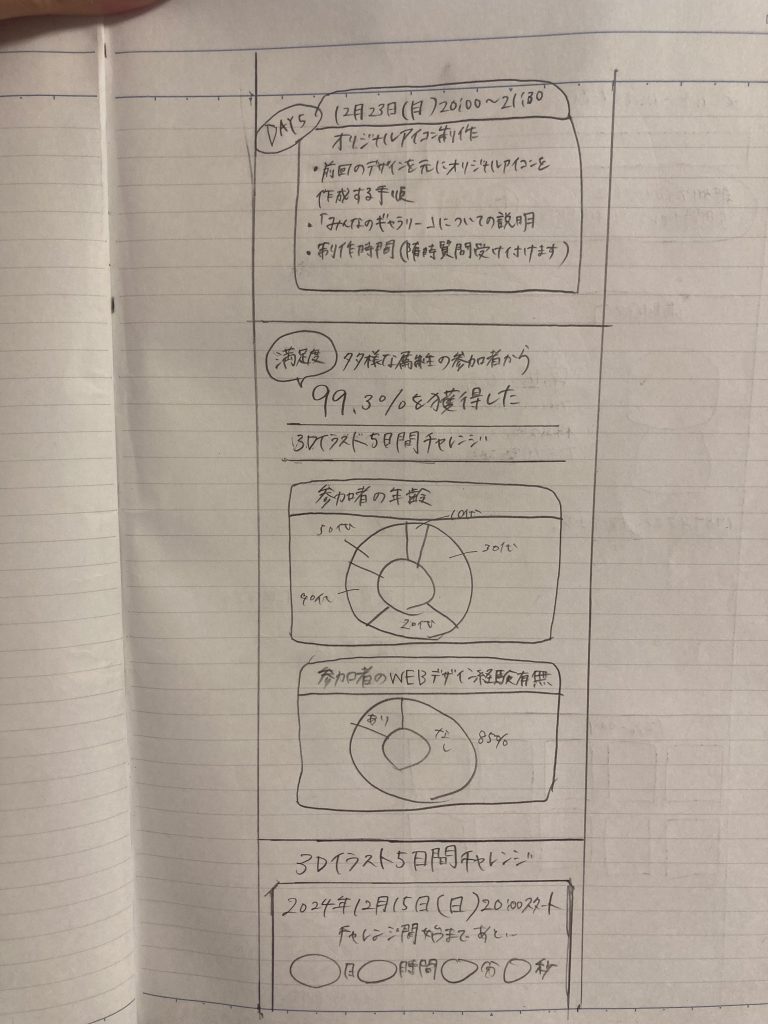 DAY5
12月23日(月)20:00〜21:30
オリジナルアイコン制作
・前回のデザインを元にオリジナルアイコンを
作成する手順
・「みんなのギャラリー」についての説明
・制作時間(随時質問受け付けます)
満足度
多様な属性の参加者から
99.3%を獲得した
3Dイラスト5日間チャレンジ
参加者の年齢
10代
50代
30代
40代
20代
参加者のWEBデザイン経験有無
あり
なし
85%
3Dイラスト5日間チャレンジ
2024年12月15日(日)20:00スタート
チャレンジ開始まであと…
日 時間 分 秒